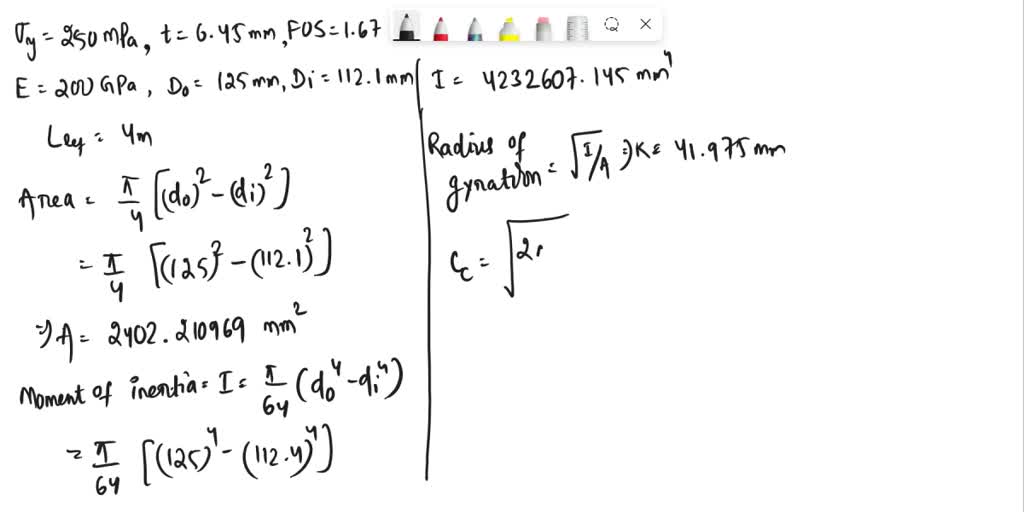 σy = 250 mPa, t = 6.45 mm, FOS = 1.67
E = 200 GPa, Do = 125 mm, Di = 112.1 mm
Leff = 4m
Area = π/4 [(do)² - (di)²]
= π/4 [(125)² - (112.1)²]
⇒ A = 2402.210969 mm²
Moment of inertia = I = π/64 (do⁴ - di⁴)
= π/64 [(125)⁴ - (112.4)⁴]
I = 4232607.145 mm⁴
Radius of
gyration = √I/A ⇒ K = 41.975 mm
Cc = √2